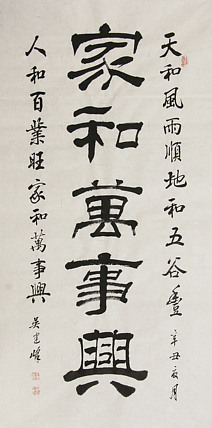 天和風雨順地和五谷豐 辛丑夏月
家和萬事興
人和百業旺家和萬事興 吴建